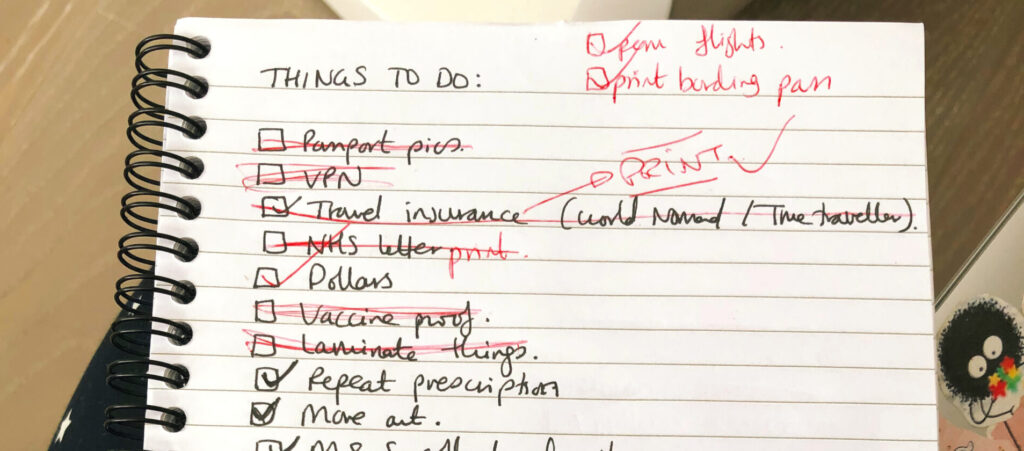 flights.
print bording pass
THINGS TO DO:
Passport pics.
VPN
PRINT
Travel insurance (World Nomad / True traveller).
NHS letter print.
Dollars
Vaccine proof.
Laminate things.
Repeat prescription
Move out.
M&S